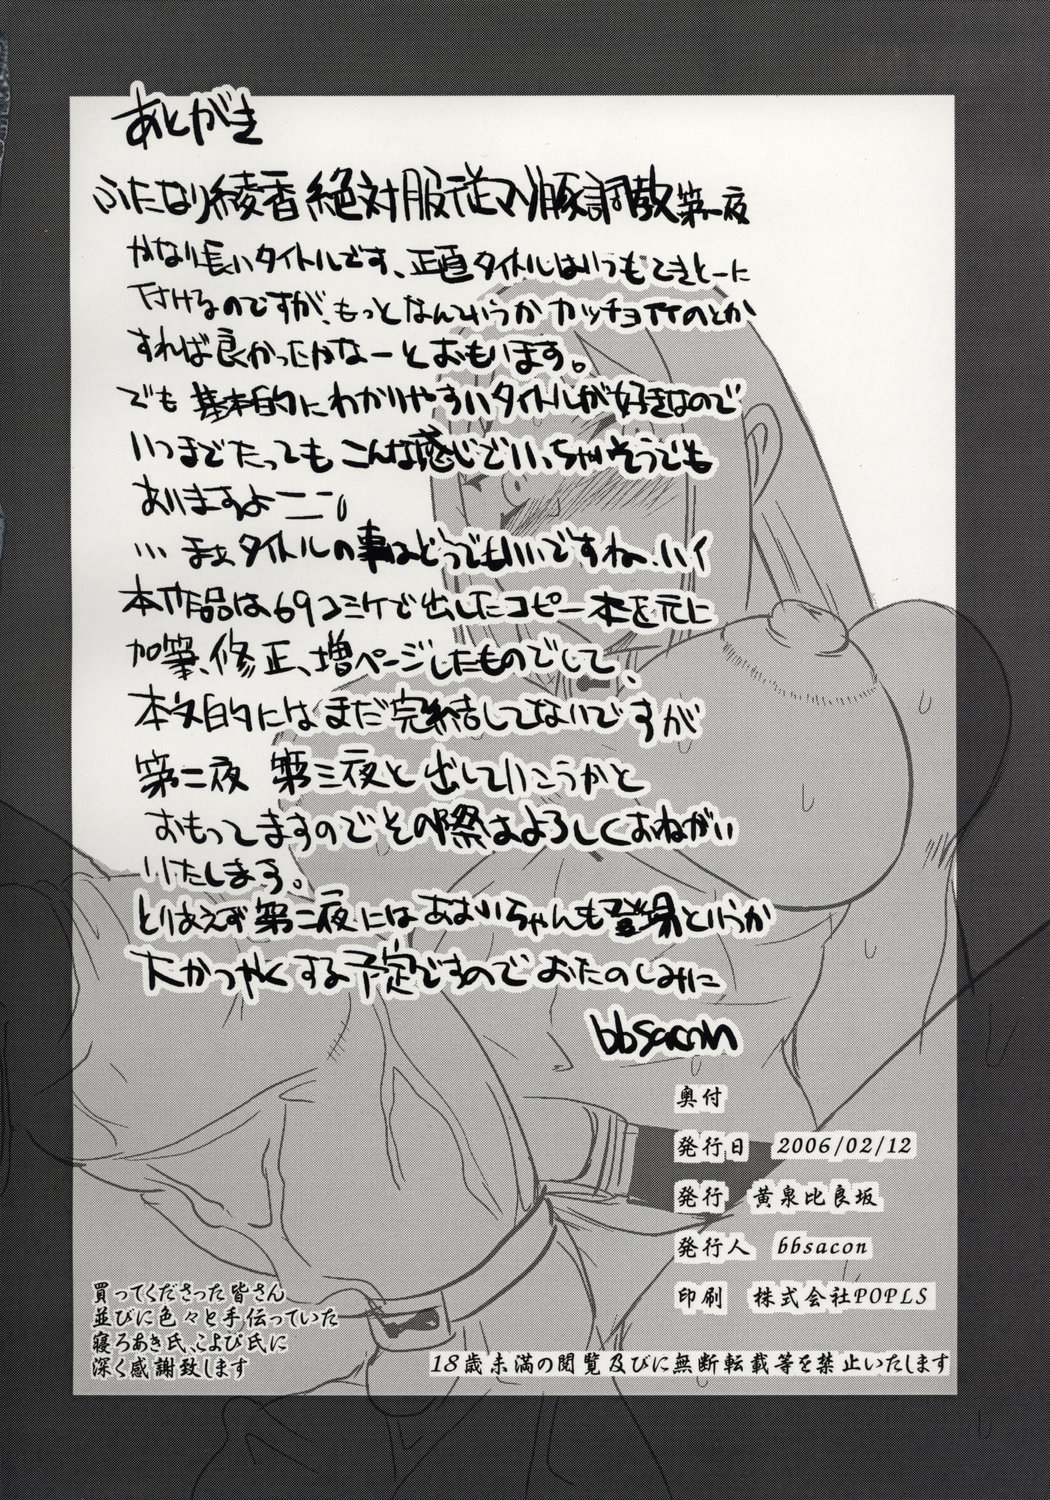 あとがき
ふたなり綾香絶対服従マゾ豚調教第一夜
かなり長いタイトルです、正直タイトルはいつもてきとーに
付けるのですが、もっとなんていうかカッチョイイのとか
すれば良かったかなーとおもいます。
でも基本的にわかりやすいタイトルが好きなので
いつまでたってもこんな感じでいっちゃいそうでも
ありますよーニン
… まぁタイトルの事はどうでもいいですね、ハイ
本作品は69コミケで出したコピー本を元に
加筆、修正、増ページしたものでして、
本文的にはまだ完結してないですが
第二夜 第三夜と出していこうかと
おもってますのでその際はよろしくおねがい
いたします。
とりあえず第二夜にはあおいちゃんも登場というか
大かつやくする予定ですのでおたのしみに
bbsacon
奥付
発行日 2006/02/12
発行 黄泉比良坂
発行人 bbsacon
印刷 株式会社POPLS
買ってくださった皆さん
並びに色々と手伝っていた
寝ろあき氏、こよび氏に
深く感謝致します
18歳未満の閲覧及びに無断転載等を禁止いたします